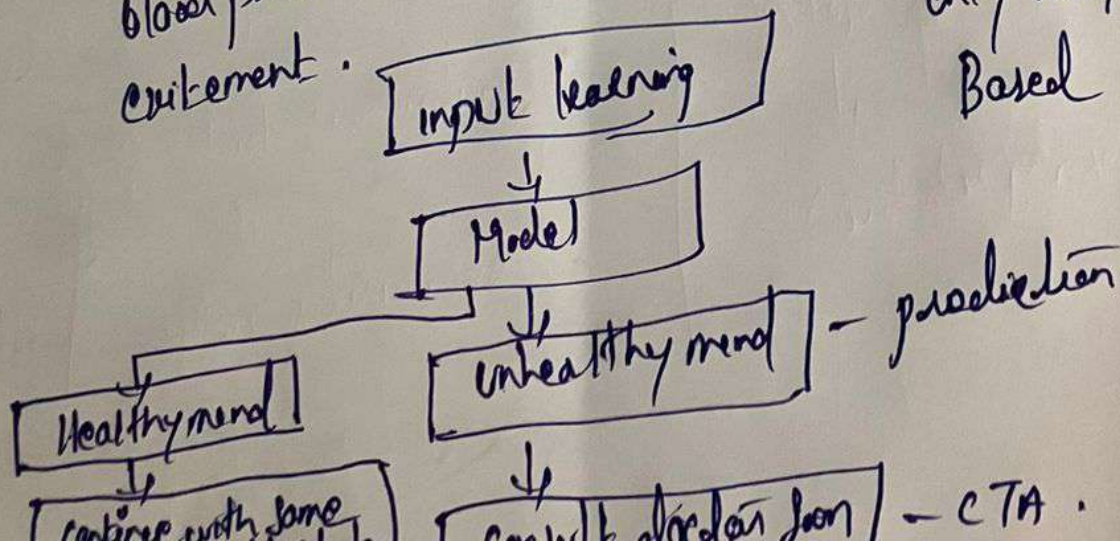 blood
exitement.
Based
input learning
Model
unhealthy mind - prediction
Healthy mind
continue with same
doctor soon - CTA.